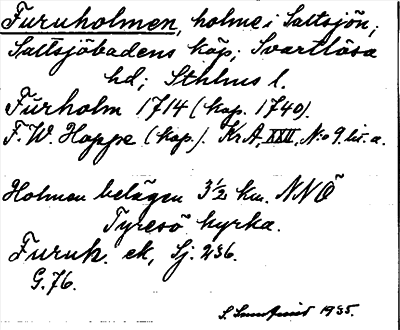 Furuholmen, holme i Saltsjön;
Saltsjöbadens köp; Svartlösa
hd; Sthlms l.
Furholm 1714 (kop. 1740).
F. W. Hoppe (kop.). KrA, XXII, No 9. lit. a.
Holmen belägen 3½ km. NNÖ
Tyresö kyrka.
Furuh. ek, Sj. 236.
G. 76.
1935.